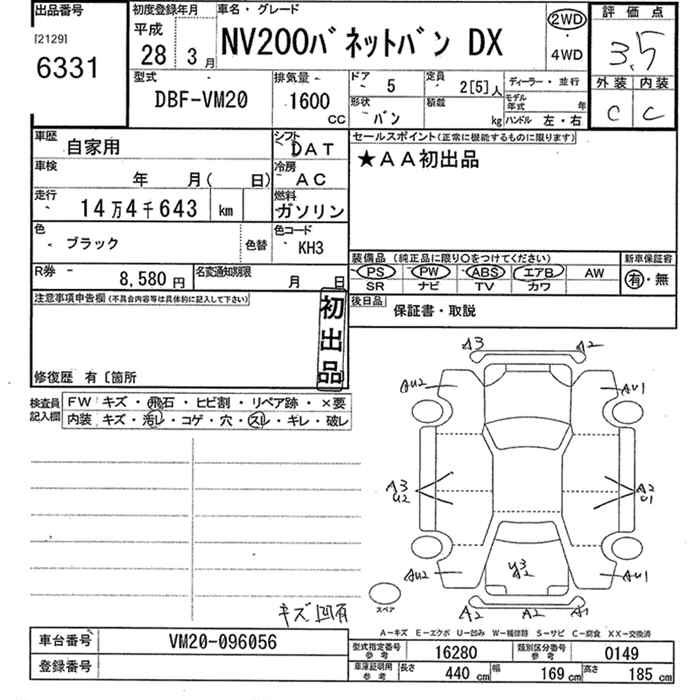 出品番号
[2129]
6331
初度登録年月
平成
28 3月
車名・グレード
NV200バネットバン DX
2WD
・
4WD
評価点
3.5
外装 内装
C C
型式
DBF-VM20
排気量
1600
CC
ドア
5
定員
2[5]人
形状
バン
積載
kg
ディーラー・並行
モデル年式 年
ハンドル 左・右
車歴
自家用
シフト
DAT
セールスポイント(正常に機能するものに限ります)
★AA初出品
車検
年 月( 日)
冷房
AC
走行
14万4千643 km
燃料
ガソリン
色
ブラック
色替
色コード
KH3
装備品 (純正品に限り○をつけてください)
PS PW ABS エアB AW
SR ナビ TV カワ
新車保証書
有・無
R券
8,580円
名変通知期限
月 日
後日品
保証書・取説
注意事項申告欄(不具合内容等は具体的に記入して下さい)
初出品
修復歴 有〔箇所
検査員記入欄
FW キズ・飛石・ヒビ割・リペア跡・×要
内装 キズ・汚レ・コゲ・穴・スレ・キレ・破レ
A3 A2
AU2 AU1
A3 U2
A2 U1
AU2 AU1
A2 A2 A1
スペア
キズ凹有
A-キズ E-エクボ U-凹み W-補修跡 S-サビ C-腐食 XX-交換済
車台番号
VM20-096056
登録番号
型式指定番号 参考
16280
類別区分番号 参考
0149
車庫証明用 参考
長さ 440 cm 幅 169 cm 高さ 185 cm